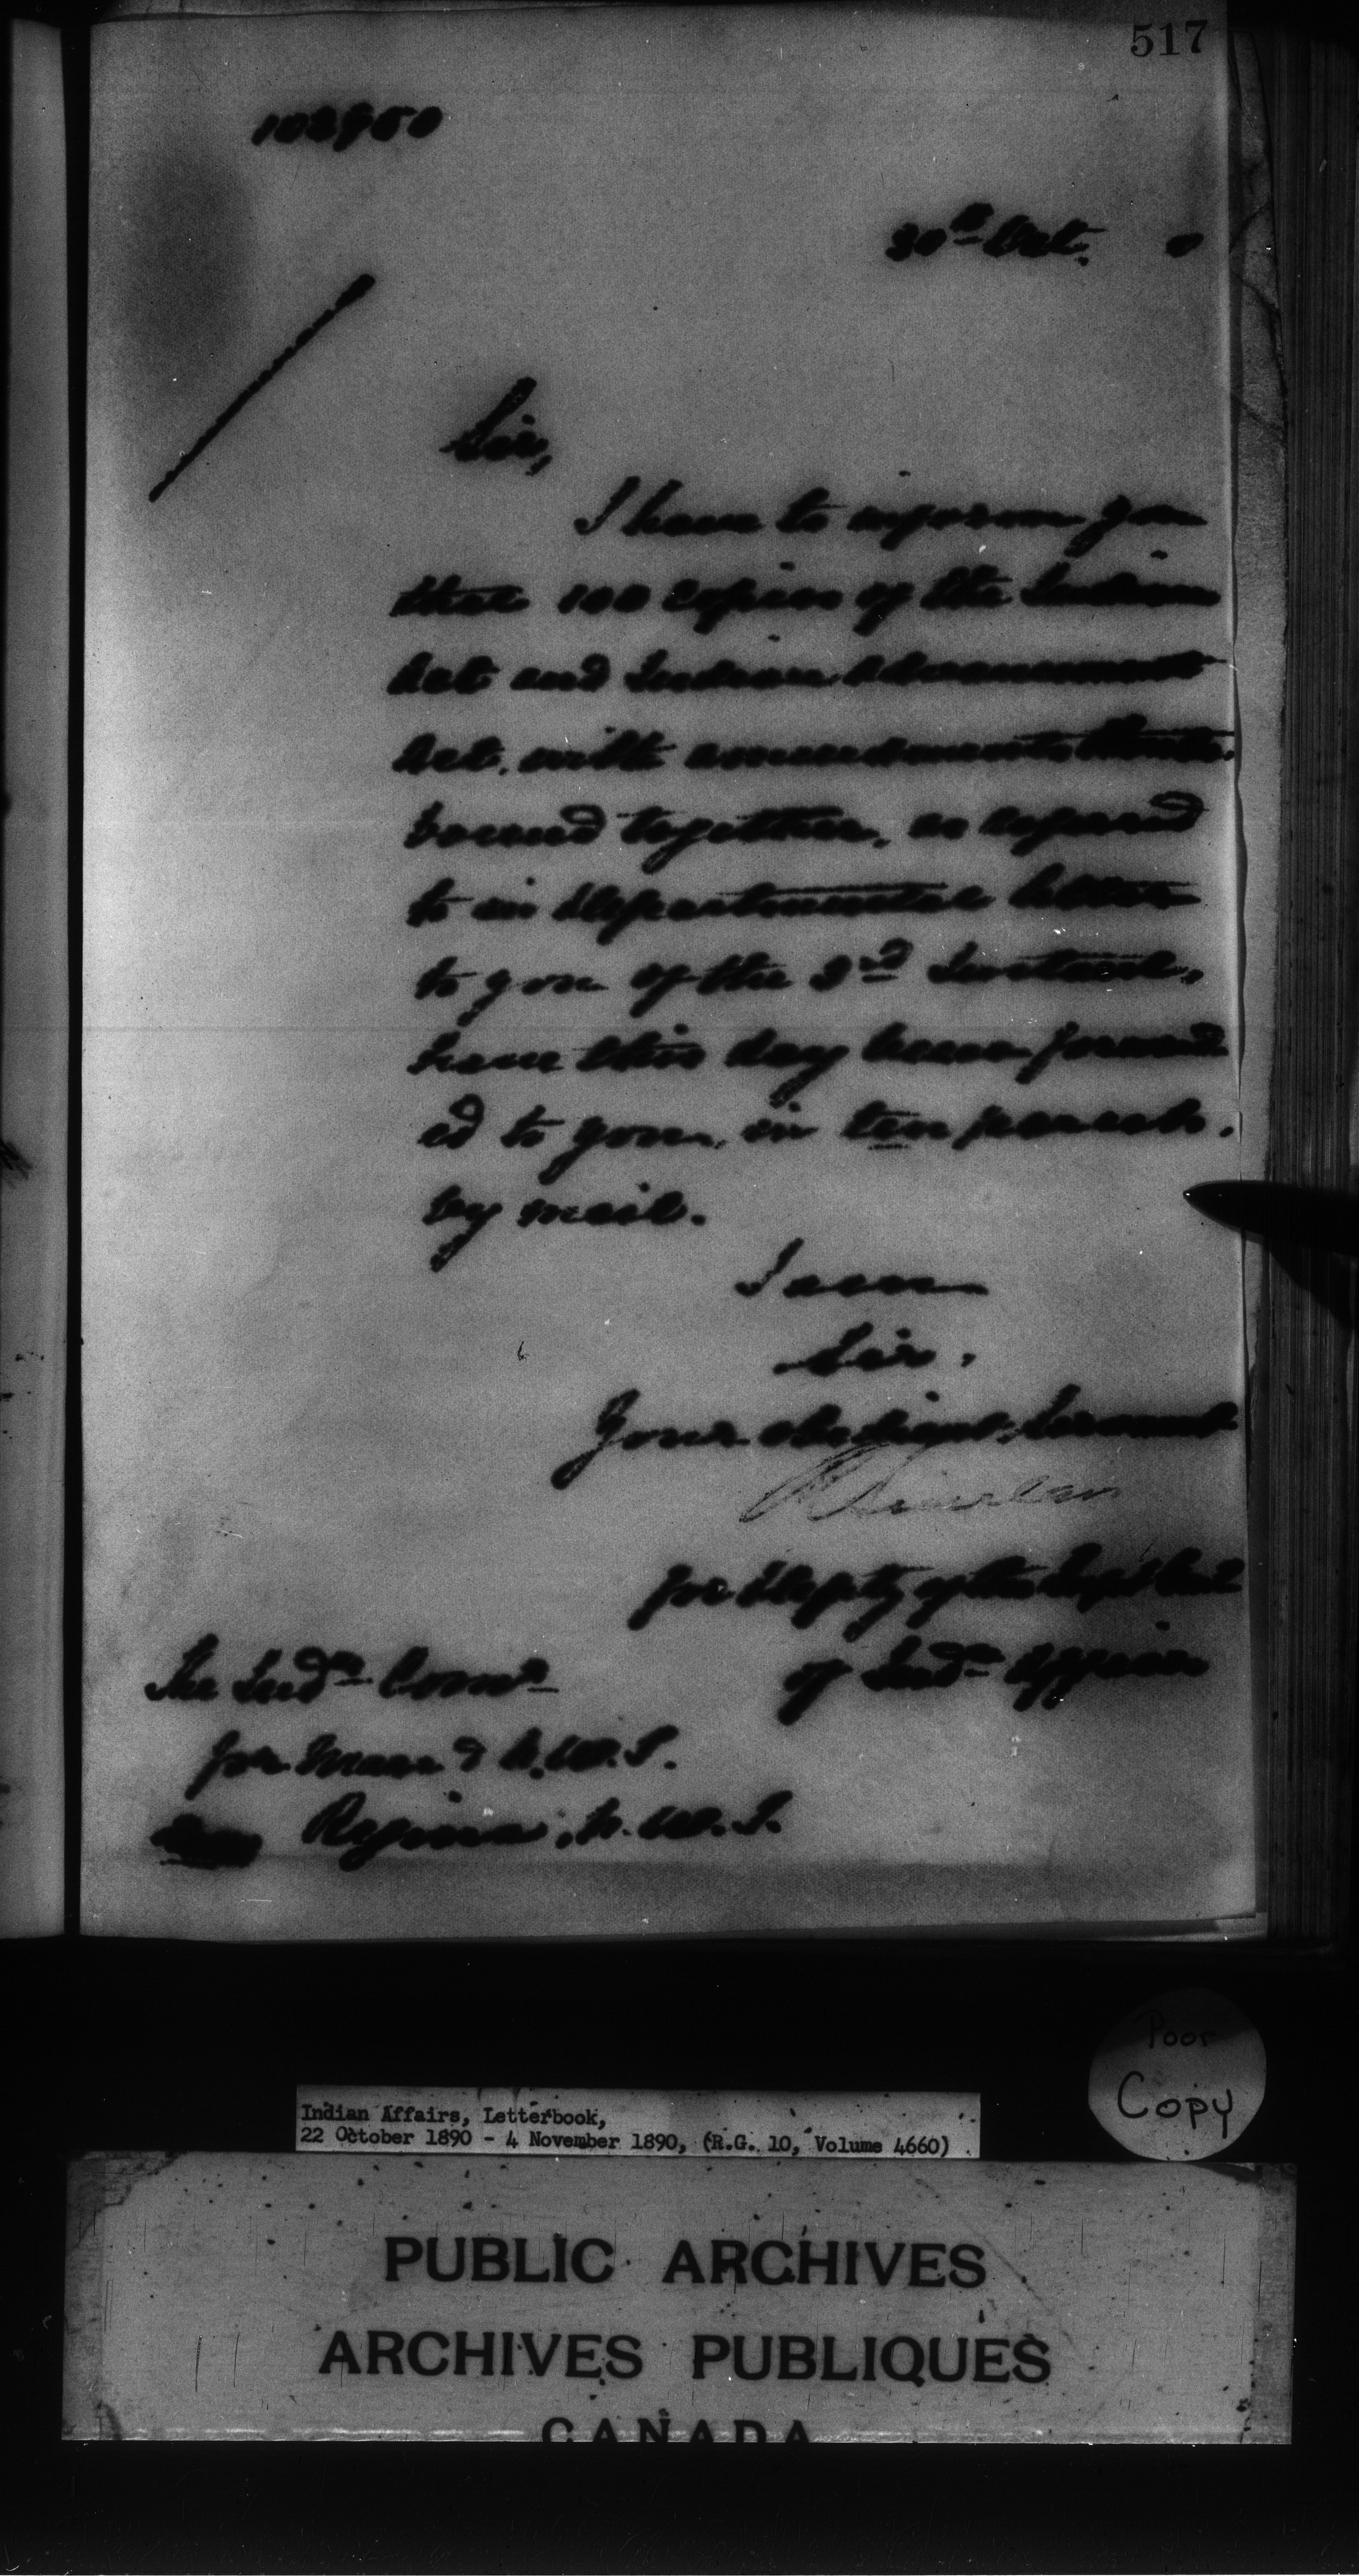 517
102950
30th Oct. 0
Sir,
I have to inform you
that 100 copies of the Indian
Act and Indian Advancement
Act, with amendments thereto,
bound together, as referred
to in Departmental letter
to you of the 3rd Instant,
have this day been forward
ed to you, in ten parcels,
by mail.
I am
Sir,
Your obedient Servant
R Sinclair
for Deputy of the Supt Genl
of Indn Affairs
The Indn Comr
for Man & N.W.T.
Regina, N.W.T.
Poor
Copy
Indian Affairs, Letterbook,
22 October 1890 - 4 November 1890, (R.G. 10, Volume 4660)
PUBLIC ARCHIVES
ARCHIVES PUBLIQUES
CANADA